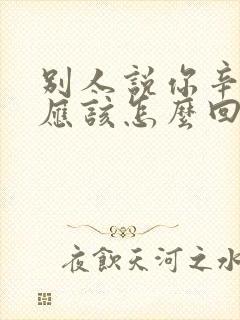 别人說你辛
應該怎麼回
夜飲天河之水